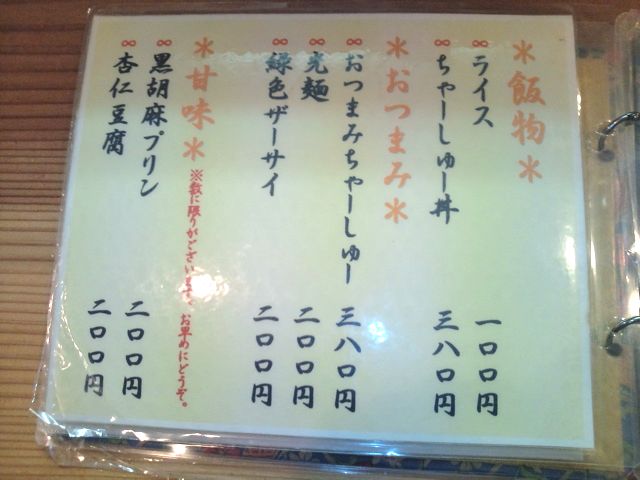 ＊飯物＊
∞ライス 一〇〇円
∞ちゃーしゅー丼 三八〇円
＊おつまみ＊
∞おつまみちゃーしゅー 三八〇円
∞光麺 二〇〇円
∞緑色ザーサイ 二〇〇円
＊甘味＊ ※数に限りがございます、お早めにどうぞ。
∞黒胡麻プリン 二〇〇円
∞杏仁豆腐 二〇〇円